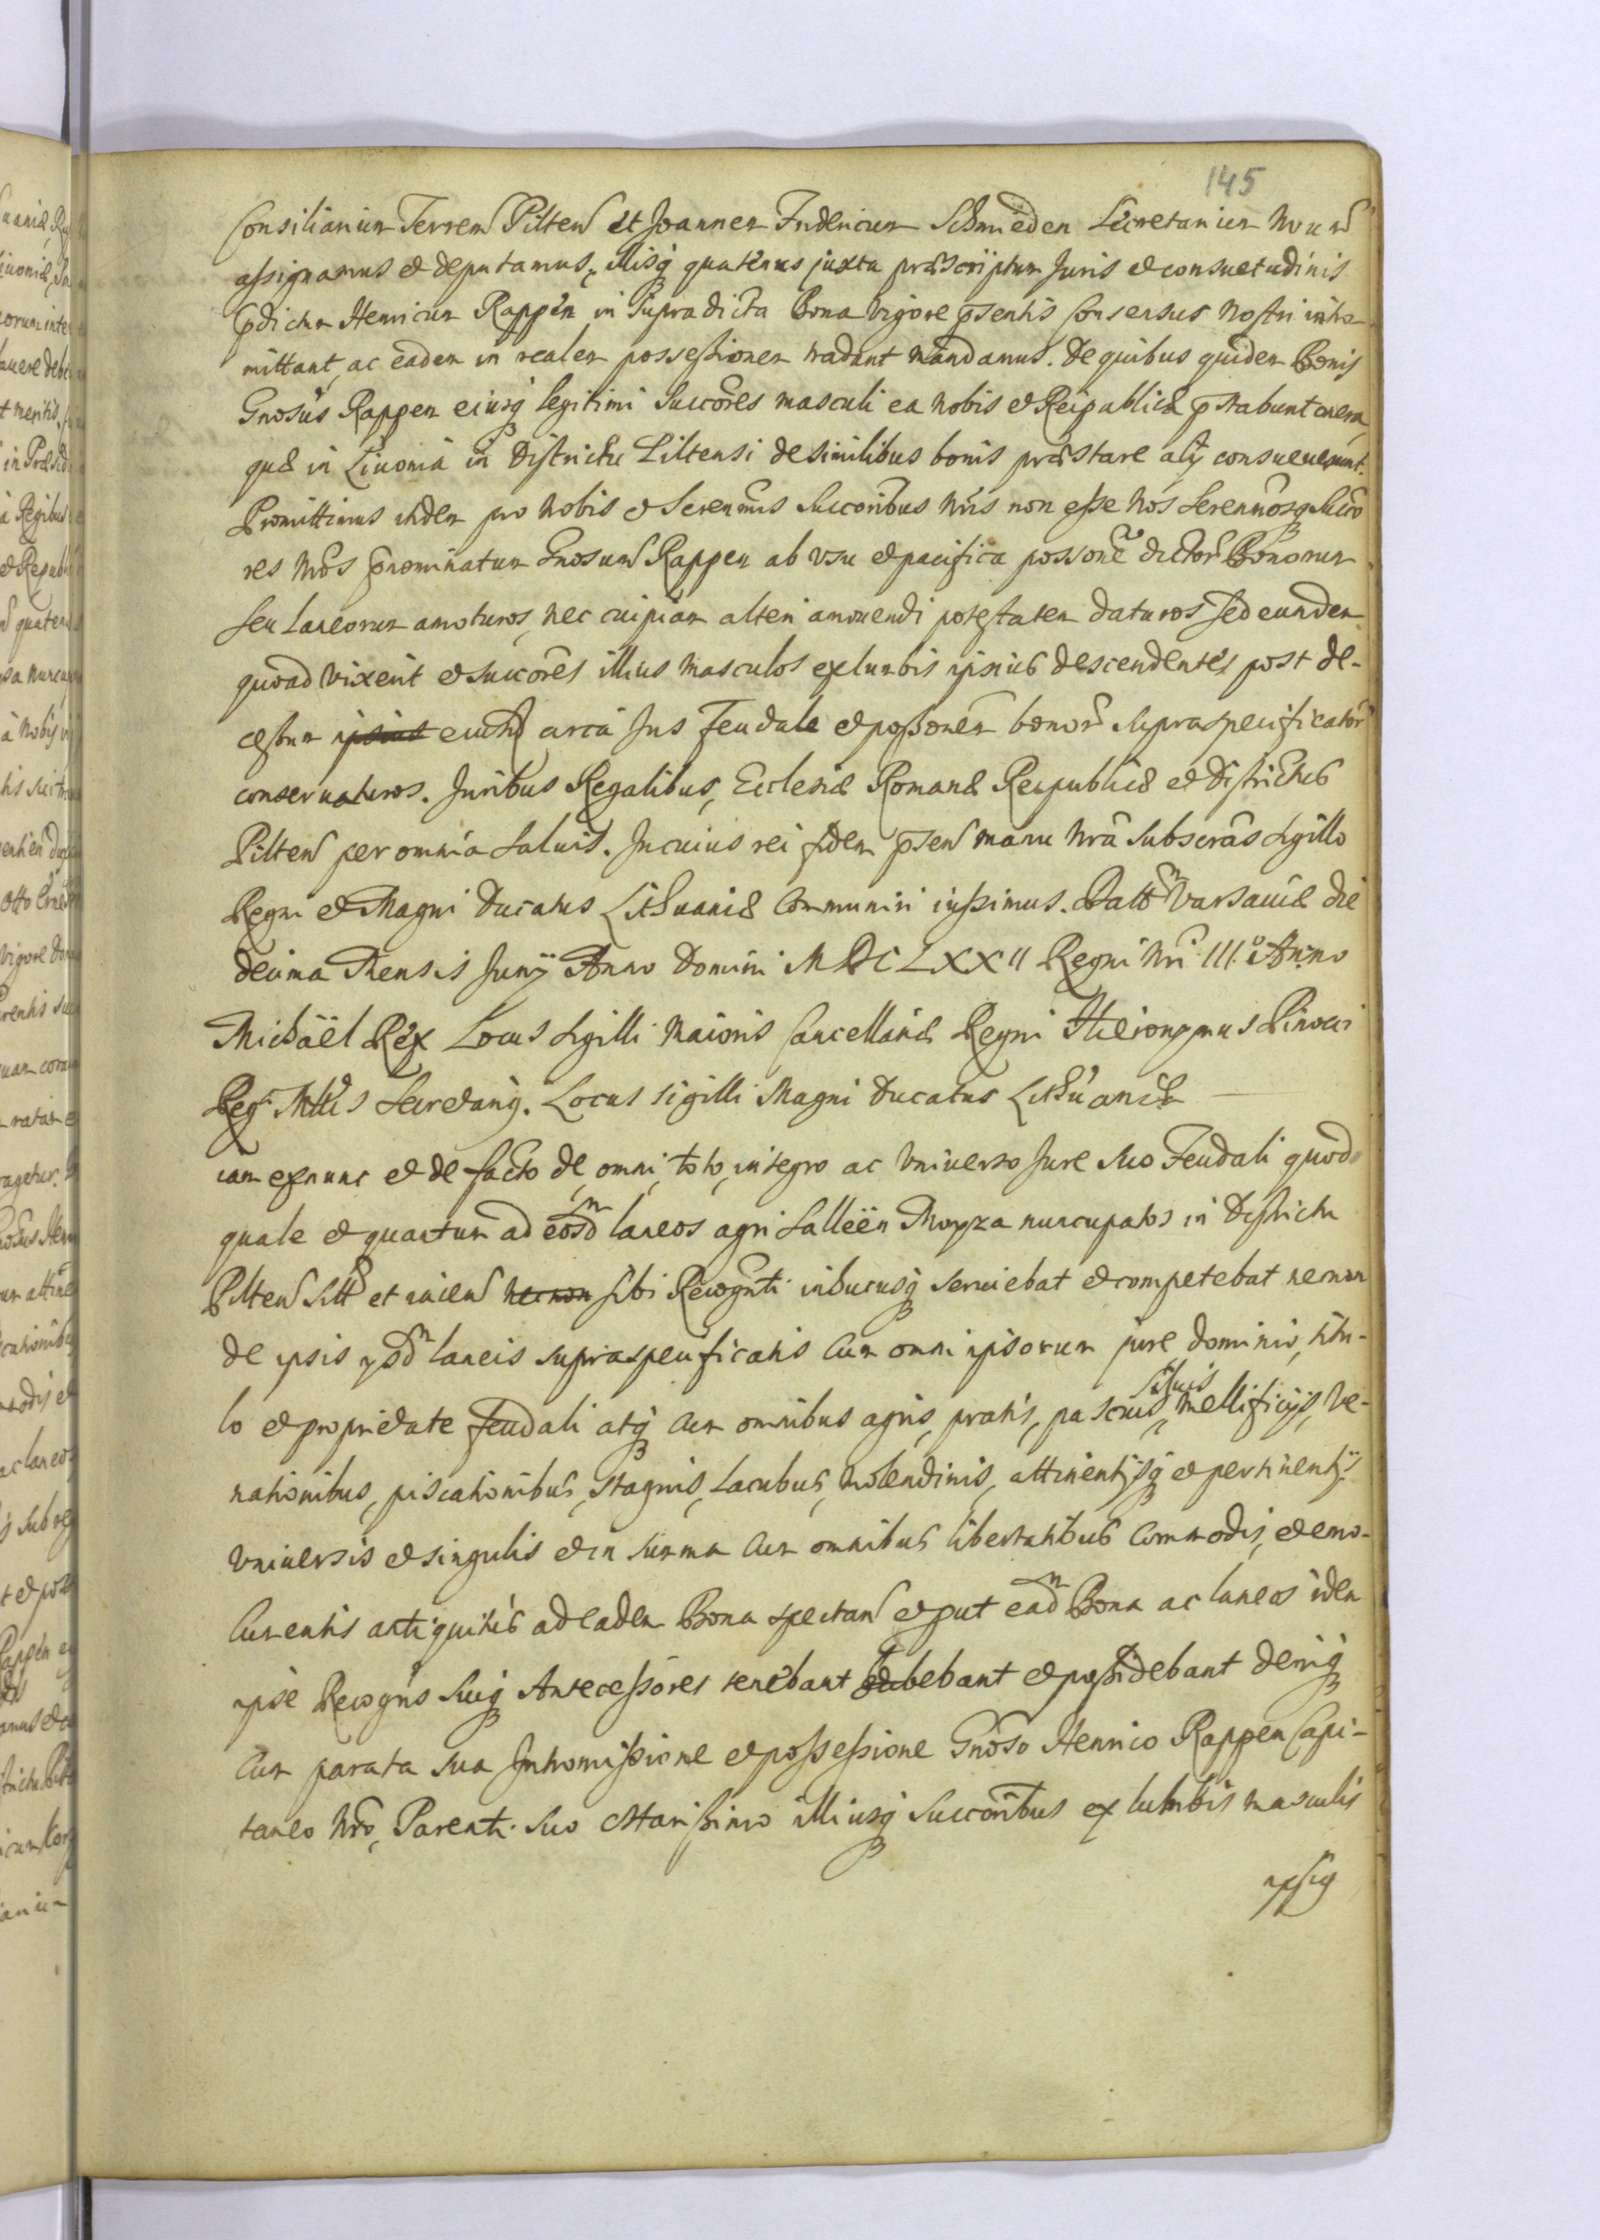 145
Consiliarium Terren Pilten et Joannem Fridericum Schmieden Secretarium Nrum
assignamus et deputamus, illisq quatenus juxta præscriptum Juris et consuetudinis
pdictum Henricum Rappen in Supradicta Bona vigore psentis Consensus Nostri intro-
mittant, ac eadem in realem possessionem tradant mandamus. De quibus quidem Bonis
Gnosus Rappen eiusq legitimi Succores masculi ea Nobis et Reipublicæ pstabunt onera,
quæ in Livonia in Districtu Piltensi de similibus bonis præstare alij consueuerunt.
Promittimus itidem pro Nobis et Serenmis Succoribus Nris non esse Nos Serenmosq Succo
res Nros pnominatum Gnosum Rappen ab vsu et pacifica possone dictor Bonorum
seu Laneorum amoturos, nec cuipiam alteri amouendi potestatem daturos sed eundem
quoad vixerit et succores illius masculos ex lumbis ipsius descendentes post de-
cessum ipsius circa Jus Feudale et possonem bonor supraspecificator
conseruaturos. Juribus Regalibus, Ecclesiæ Romanæ Reipublicæ et Districtus
Pilten per omnia saluis. In cuius rei fidem psen manu Nra subscras sigillo
Regni et Magni Ducatus Lithuaniæ Communiri iussimus. Datt Varsauiæ die
decima Mensis Junij Anno Domini MDCLXXII Regni Nri III. Anno
Michaël Rex Locus Sigilli Maioris Cancellariæ Regni Hieronymus Pinocci
Reg Mttis Secretariq. Locus sigilli Magni Ducatus Lithuaniæ —
iam ex nunc et de facto de omni, toto, integro ac vniuerso Jure suo Feudali quod
quale et quantum ad eosd laneos agri Salleën Moyza nuncupatos in Districtu
Pilten sitt et iacen necnon sibi Recognti inhucusq seruiebat et competebat necnon
de ipsis ysd laneis supraspecificatis cum omni ipsorum jure dominio, titu-
lo et proprietate feudali atq cum omnibus agris, pratis, pascuis, siluis mellificijs, Ve-
nationibus, piscationibus, stagnis, Lacubus, molendinis, attinentijsq et pertinentijs
Vniuersis et singulis et in summa cum omnibus libertatibus Commodis, et emo-
lumentis antiquitus ad eadem Bona spectan et put ead Bona ac laneos idem
ipse Recogns suiq Antecessores tenebant habebant et possidebant deniq
cum parata sua Intromissione et possessione Gnoso Henrico Rappen Capi-
taneo Nro, Parenti suo Charissimo illiusq succoribus ex lumbis masculis
ipsiq